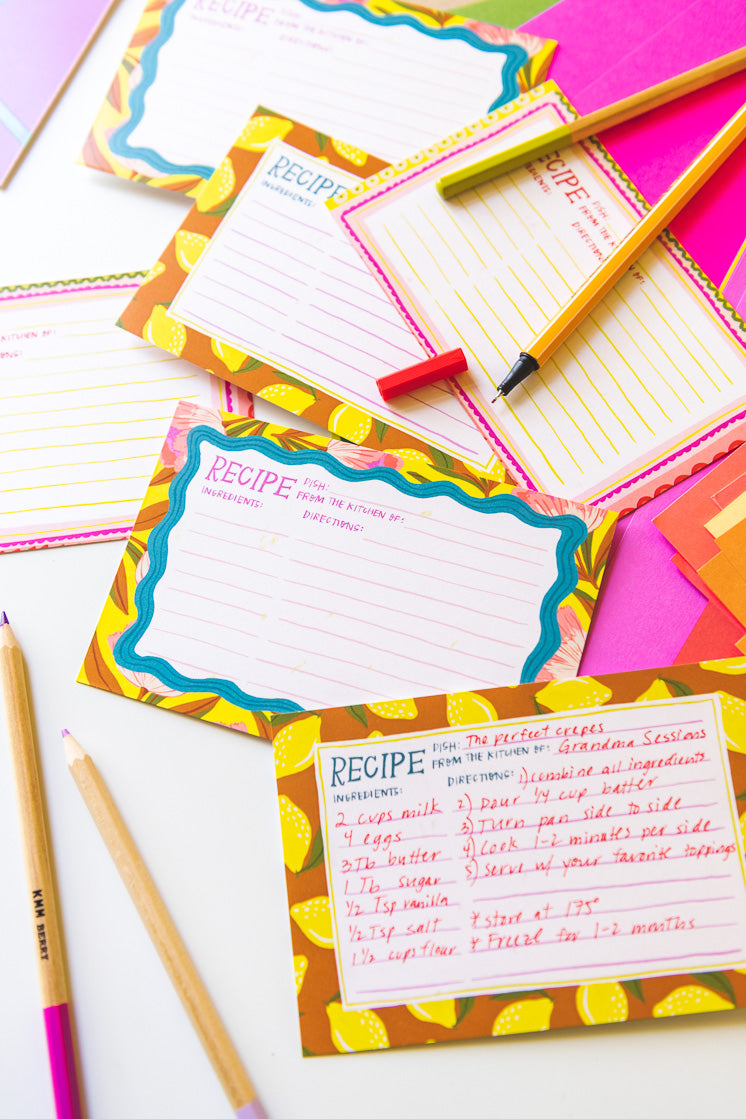 RECIPE
FROM THE KITCHEN OF:
DIRECTIONS:
RECIPE
INGREDIENTS:
RECIPE
DISH:
FROM THE KITCHEN OF:
INGREDIENTS:
DIRECTIONS:
KITCHEN OF:
RECIPE DISH:
FROM THE KITCHEN OF:
INGREDIENTS:
DIRECTIONS:
RECIPE DISH: The perfect crepes
FROM THE KITCHEN OF: Grandma Sessions
INGREDIENTS:
DIRECTIONS: 1) combine all ingredients
2 cups milk 2) Pour 1/4 cup batter
4 eggs 3) Turn pan side to side
3 Tb butter 4) Cook 1-2 minutes per side
1 Tb sugar 5) Serve w/ your favorite toppings
1/2 Tsp vanilla
1/2 Tsp salt * store at 175°
1 1/2 cups flour * Freeze for 1-2 months
KMM BERRY